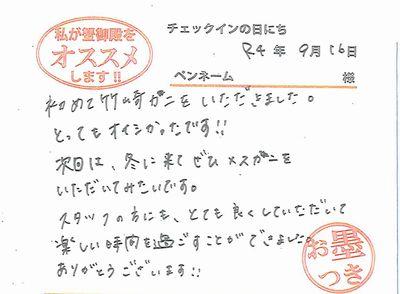 私が蟹御殿を
オススメ
します!!
チェックインの日にち
R4年 9月16日
ペンネーム 様
初めて竹崎ガニをいただきました。
とってもオイシかったです!!
次回は、冬に来てぜひメスガニを
いただいてみたいです。
スタッフの方にも、とても良くしていただいて
楽しい時間を過ごすことができました。
ありがとうございます!!
お墨
つき